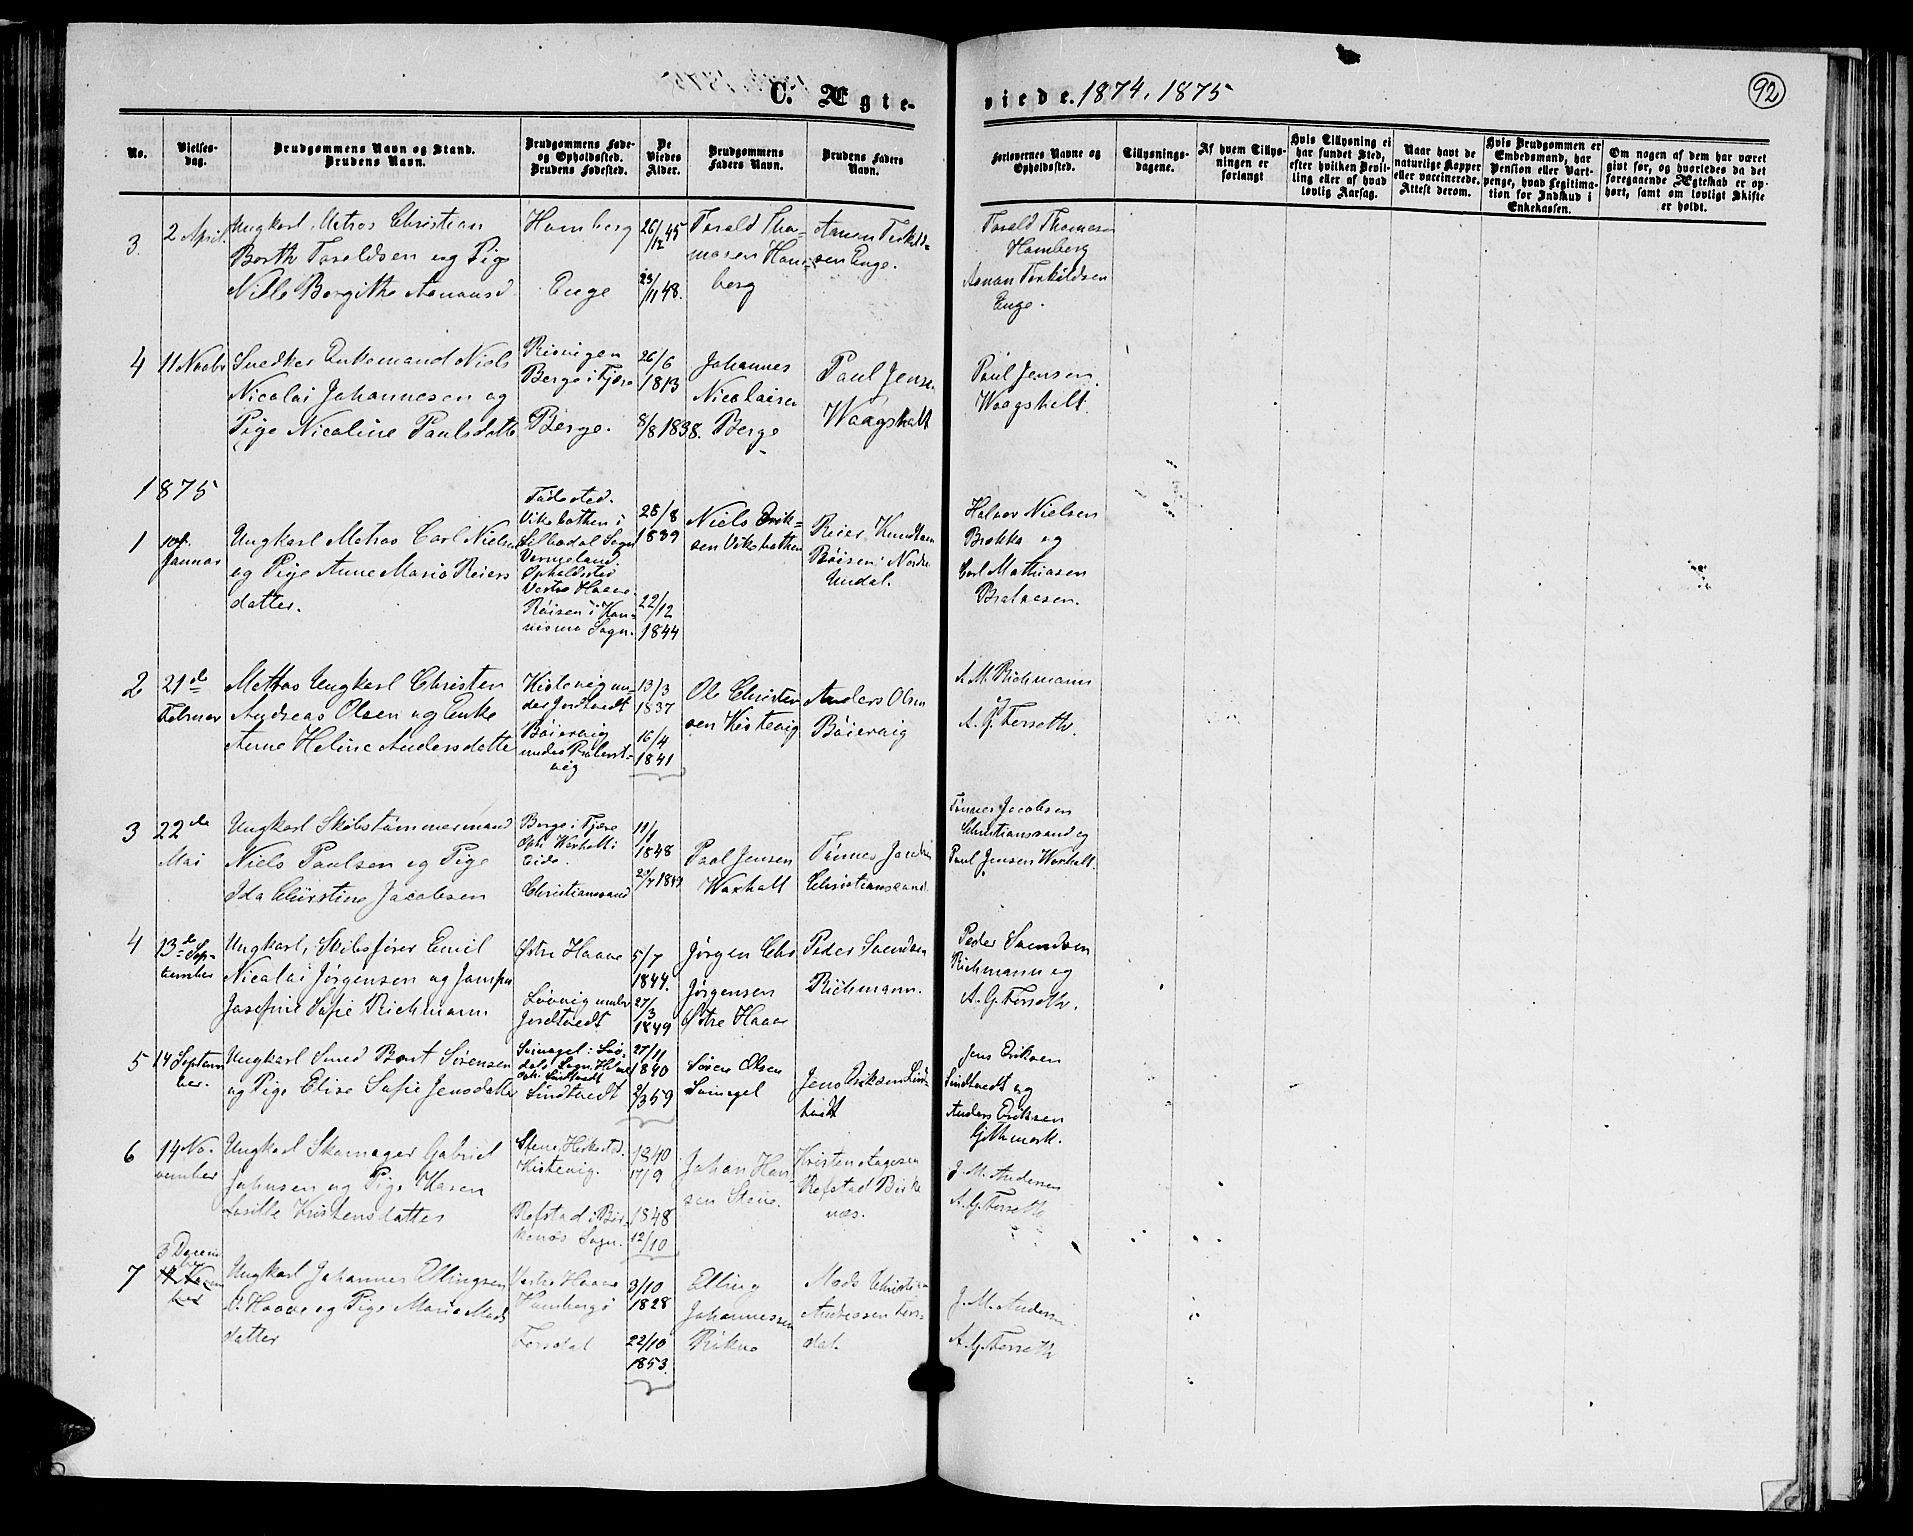 C. Ægte-
viede. 1874, 1875
92
No.
Vielses-
dag.
Brudgommens Navn og Stand.
Brudens Navn.
Brudgommens Føde-
og Opholdssted.
Brudens Fødested.
De
Viedes
Alder.
Brudgommens
Faders Navn.
Brudens Faders
Navn.
Forlovernes Navne og
Opholdssted.
Tillysnings-
dagene.
Af hvem Tillys-
ningen er
forlangt
Hvis Tillysning ei
har fundet Sted,
efter hvilken Bevil-
ling eller af hvad
lovlig Aarsag.
Naar havt de
naturlige Kopper
eller vaccinerede.
Attest derom.
Hvis Brudgommen er
Embedsmand, har
Pension eller Vart-
penge, hvad Legitima-
tion for Indskud i
Enkekassen.
Om nogen af dem har været
gift før, og hvorledes da det
foregaaende Ægteskab er op-
hørt, samt om lovligt Skifte
er holdt.
3.
2 April.
Ungkarl, Matros Christian
Borth Taraldsen og Pige
Nille Borgithe Aanonsd.
Homberg
Enge
26/12 45
23/11 48.
Tarald Tho-
masen Hom-
berg
Aanon Terkild-
sen Enge.
Tarald Thomasen
Homberg
Aanon Terkildsen
Enge.
4
11 Novbr
Snedker Enkemand Niels
Nicolai Johannesen og
Pige Nicoline Paulsdatter
Berge i Fjære
Berge.
26/6
1813
8/8 1838.
Johannes
Nicolaisen
Berge
Paul Jensen
Waagsholt
Paul Jensen
Waagsholt.
1875
1
10de
Januar
Ungkarl Matros Carl Nielsen
og Pige Anne Maria Reiers
datter.
Fødested.
Viksbothen i
Sogn
Opholdssted
Vestre Haave.
Røisen i
Sogn.
28/8
1839
22/12
1844
Niels Erik-
sen Viksbothen
Reier Knudsen
Røisen i Nordre
Undal.
Halvor Nielsen
Brekka og
Carl Mathiasen
2
21de
Februar
Matros Ungkarl Christen
Andreas Olsen og Enke
Anne Heline Andersdatter
Kistevig un-
der Jordtvedt
Bøiervig
under
vig
13/3
1837
16/4
1841
Ole Christen
sen Kistevig
Anders Olsen
Bøiervig
A. M. Richmann
A. G. Torseth.
3
22de
Mai
Ungkarl Skibstømmermand
Niels Paulsen og Pige
Ida Christine Jacobsen
Berge i Fjære
Oph. Waxholt i
Eide.
Christianssand
1848
1849
Paul Jensen
Waxholt
Tønnes Jacobsen
Christianssand.
Tønnes Jacobsen
Christianssand og
Paul Jensen Waxholt.
4
13de Sep-
tember
Ungkarl, Skibsfører Emil
Nicolai Jørgensen og Jomfru
Josefine Sofie Richmann
Østre Haave
Løvvig under
Jordtvedt
5/7
1844.
27/3
1849
Jørgen Chr
Jørgensen
Østre Haave
Peder Svendsen
Richmann.
Peder Svendsen
Richmann og
A. G. Torseth.
5
14 Septem
ber.
Ungkarl Smed Bont Sørensen
og Pige Elise Sofie Jensdatter
Sindtvedt
27/11
1840
2/3 59
Søren Olsen
Svinagel
Jens Eriksen Sind-
tvedt
Jens Eriksen
Sindtvedt og
Anders Eriksen
6
14 No-
vember
Ungkarl Skomager Gabriel
Johnsen og Pige Karen
Lusille Kristensdatter
Kistevig.
Refstad i Bir-
kenæs Sogn.
1848
12/10
Johan Han-
sen Stene.
Kristen Aagesen
Refstad Birke
næs.
J. M. Andersen
A. G. Torseth
7
3 Decem
ber
Ungkarl Johannes Ellingsen
V. Haave og Pige Marie Mads
datter
Vestre Haave
Forsdal
3/10
1828
22/10
1853.
Elling
Johannessen
Mads Christian
Andreassen Fors-
dal.
J. M. Andersen
A. G. Torseth